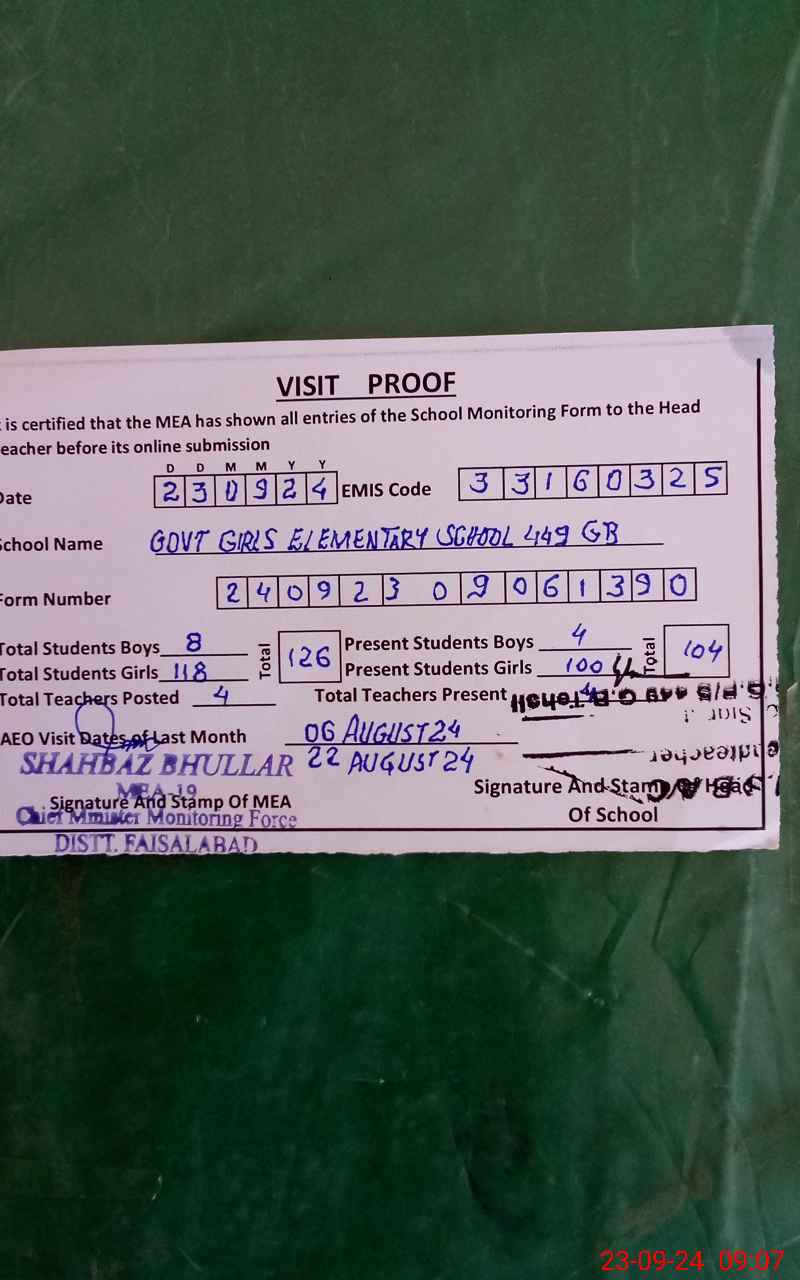 VISIT PROOF
is certified that the MEA has shown all entries of the School Monitoring Form to the Head
eacher before its online submission
D D M M Y Y
Date 230924 EMIS Code 33160325
School Name GOVT GIRLS ELEMENTARY SCHOOL 449 GB
Form Number 24092309061390
Total Students Boys 8 Total 126 Present Students Boys 4 Total 104
Total Students Girls 118 Present Students Girls 100
Total Teachers Posted 4 Total Teachers Present 4
AEO Visit Dates of Last Month 06 AUGUST 24
22 AUGUST 24
SHAHBAZ BHULLAR
MEA-19
Signature And Stamp Of MEA
Chief Minister Monitoring Force
DISTT. FAISALABAD
Signature And Stamp Of Head
Of School
23-09-24 09:07